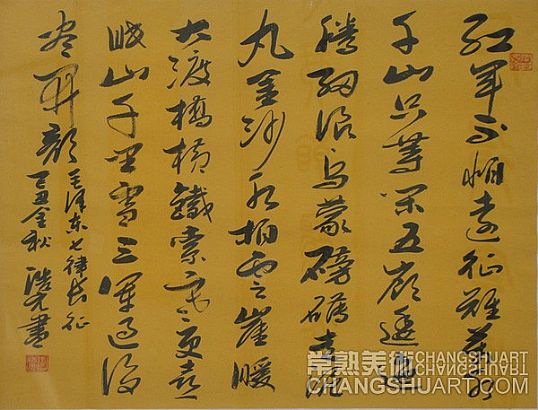 红军不怕远征难万水
千山只等闲五岭逶迤
腾细浪乌蒙磅礴走泥
丸金沙水拍云崖暖
大渡橋横鐵索寒更喜
岷山千里雪三軍过後
尽開颜
毛泽东七律长征
己丑金秋 浩書
常熟美術 CHANGSHUART
CHANGSHUART.COM